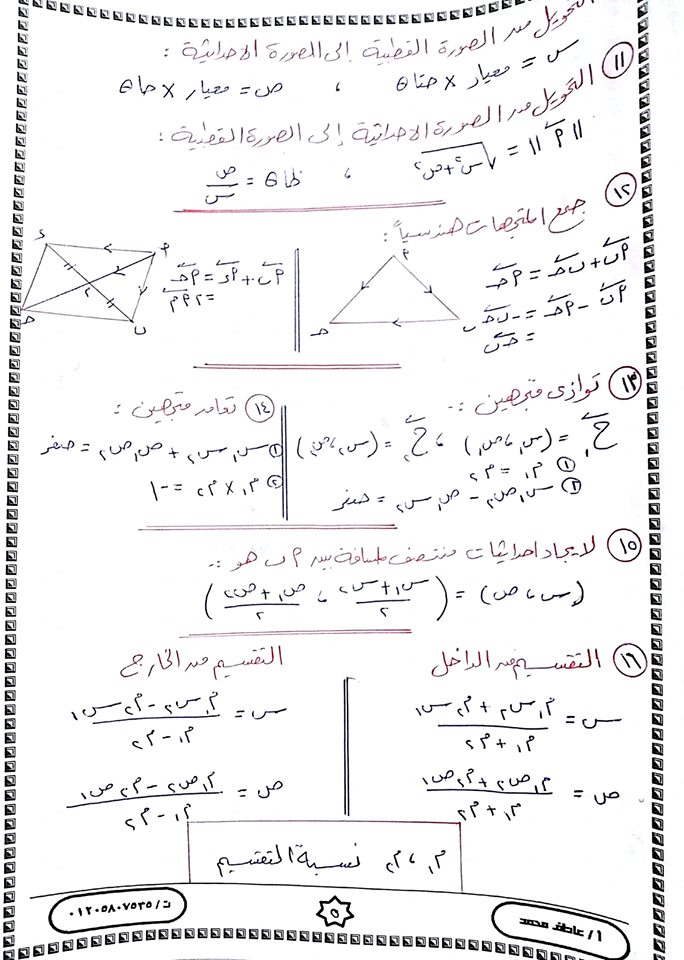 التحويل من الصورة القطبية إلى الصورة الاحداثية :
١١ س = معيار × حتا θ ، ص = معيار × حا θ
التحويل من الصورة الاحداثية إلى الصورة القطبية :
|| م || = √س² + ص² ، ظا θ = ص / س
١٢ جمع المتجهات هندسياً :
م ب + ب حـ = م حـ
م ب − م حـ = − ب حـ
= حـ ب
م
ب
حـ
م ب + م د = م حـ
= ٢ م م
م
ب
حـ
د
م
١٣ توازى متجهين :-
ح₁ = (س₁ ، ص₁) ، ح₂ = (س₂ ، ص₂)
① م₁ = م₂
② س₁ ص₂ − ص₁ س₂ = صفر
١٤ تعامد متجهين :
① س₁ س₂ + ص₁ ص₂ = صفر
② م₁ × م₂ = −١
١٥ لايجاد احداثيات منتصف المسافة بين م ب هو :-
(س ، ص) = ( س₁ + س₂ / ٢ ، ص₁ + ص₂ / ٢ )
١٦ التقسيم من الداخل
س = م₁ س₂ + م₂ س₁ / م₁ + م₂
ص = م₁ ص₂ + م₂ ص₁ / م₁ + م₂
التقسيم من الخارج
س = م₁ س₂ − م₂ س₁ / م₁ − م₂
ص = م₁ ص₂ − م₂ ص₁ / م₁ − م₂
م₁ ، م₂ نسبة التقسيم
أ / عاطف محمد
٥
ت / ٠١٢٠٥٨٠٧٥٣٥